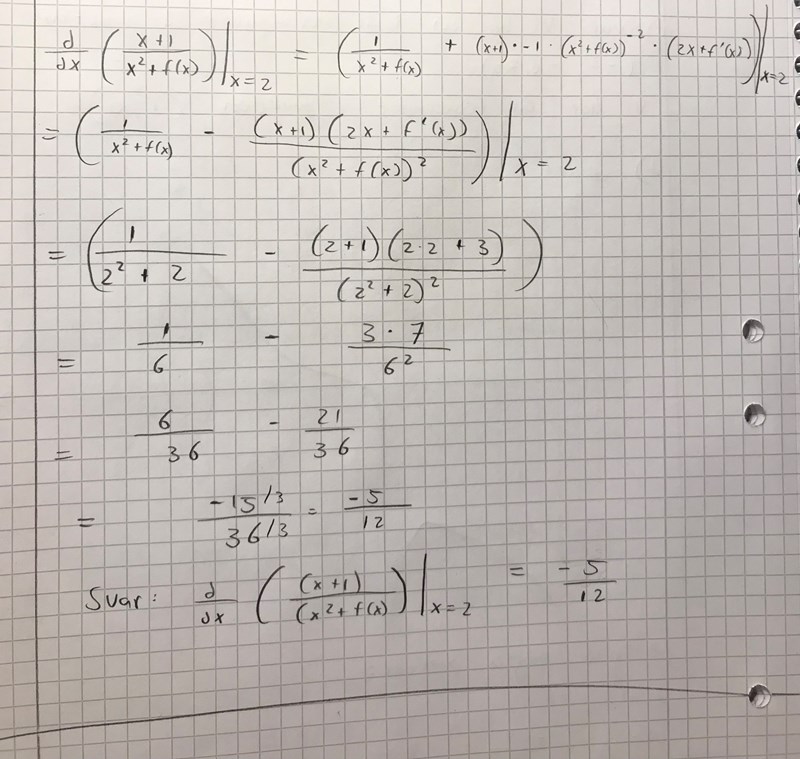 d/dx ( (x+1)/(x² + f(x)) ) |ₓ₌₂ = ( 1/(x² + f(x)) + (x+1) · -1 · (x² + f(x))⁻² · (2x + f'(x)) ) |ₓ₌₂
= ( 1/(x² + f(x)) - (x+1)(2x + f'(x))/(x² + f(x))² ) |ₓ₌₂
= ( 1/(2² + 2) - (2+1)(2·2 + 3)/(2² + 2)² )
= 1/6 - 3·7/6²
= 6/36 - 21/36
= -15/3 / 36/3 = -5/12
Svar: d/dx ( (x+1)/(x² + f(x) ) |ₓ₌₂ = -5/12